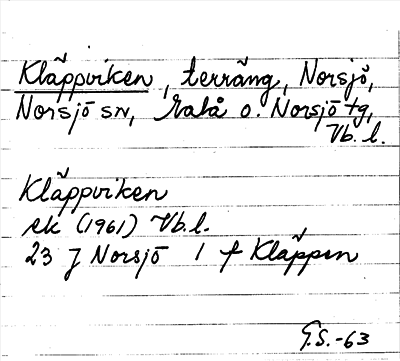 Kläppviken, terräng, Norsjö,
Norsjö sn, Malå o. Norsjö tg,
Vb. l.
Kläppviken
ek (1961) Vb. l.
23 J Norsjö 1 f Kläppen
G.S. -63